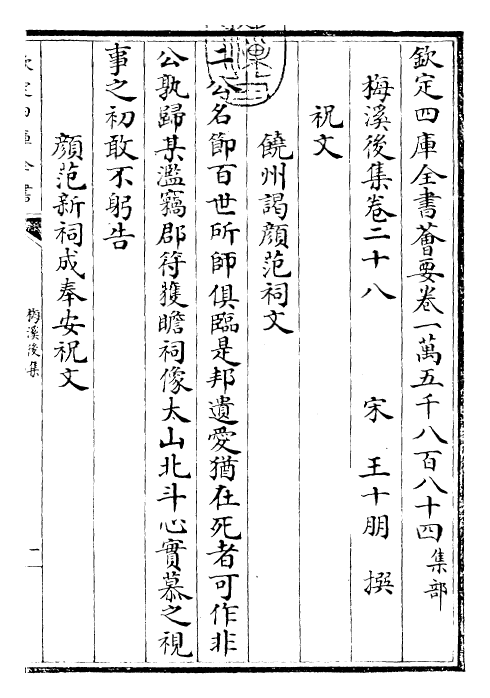 欽定四庫全書薈要卷一萬五千八百八十四 集部
梅溪後集卷二十八 宋 王十朋 撰
祝文
饒州謁顏范祠文
二公名節百世所師俱臨是邦遺愛猶在死者可作非
公孰歸某濫竊郡符獲瞻祠像太山北斗心實慕之視
事之初敢不躬告
顏范新祠成奉安祝文
欽定四庫全書
梅溪後集